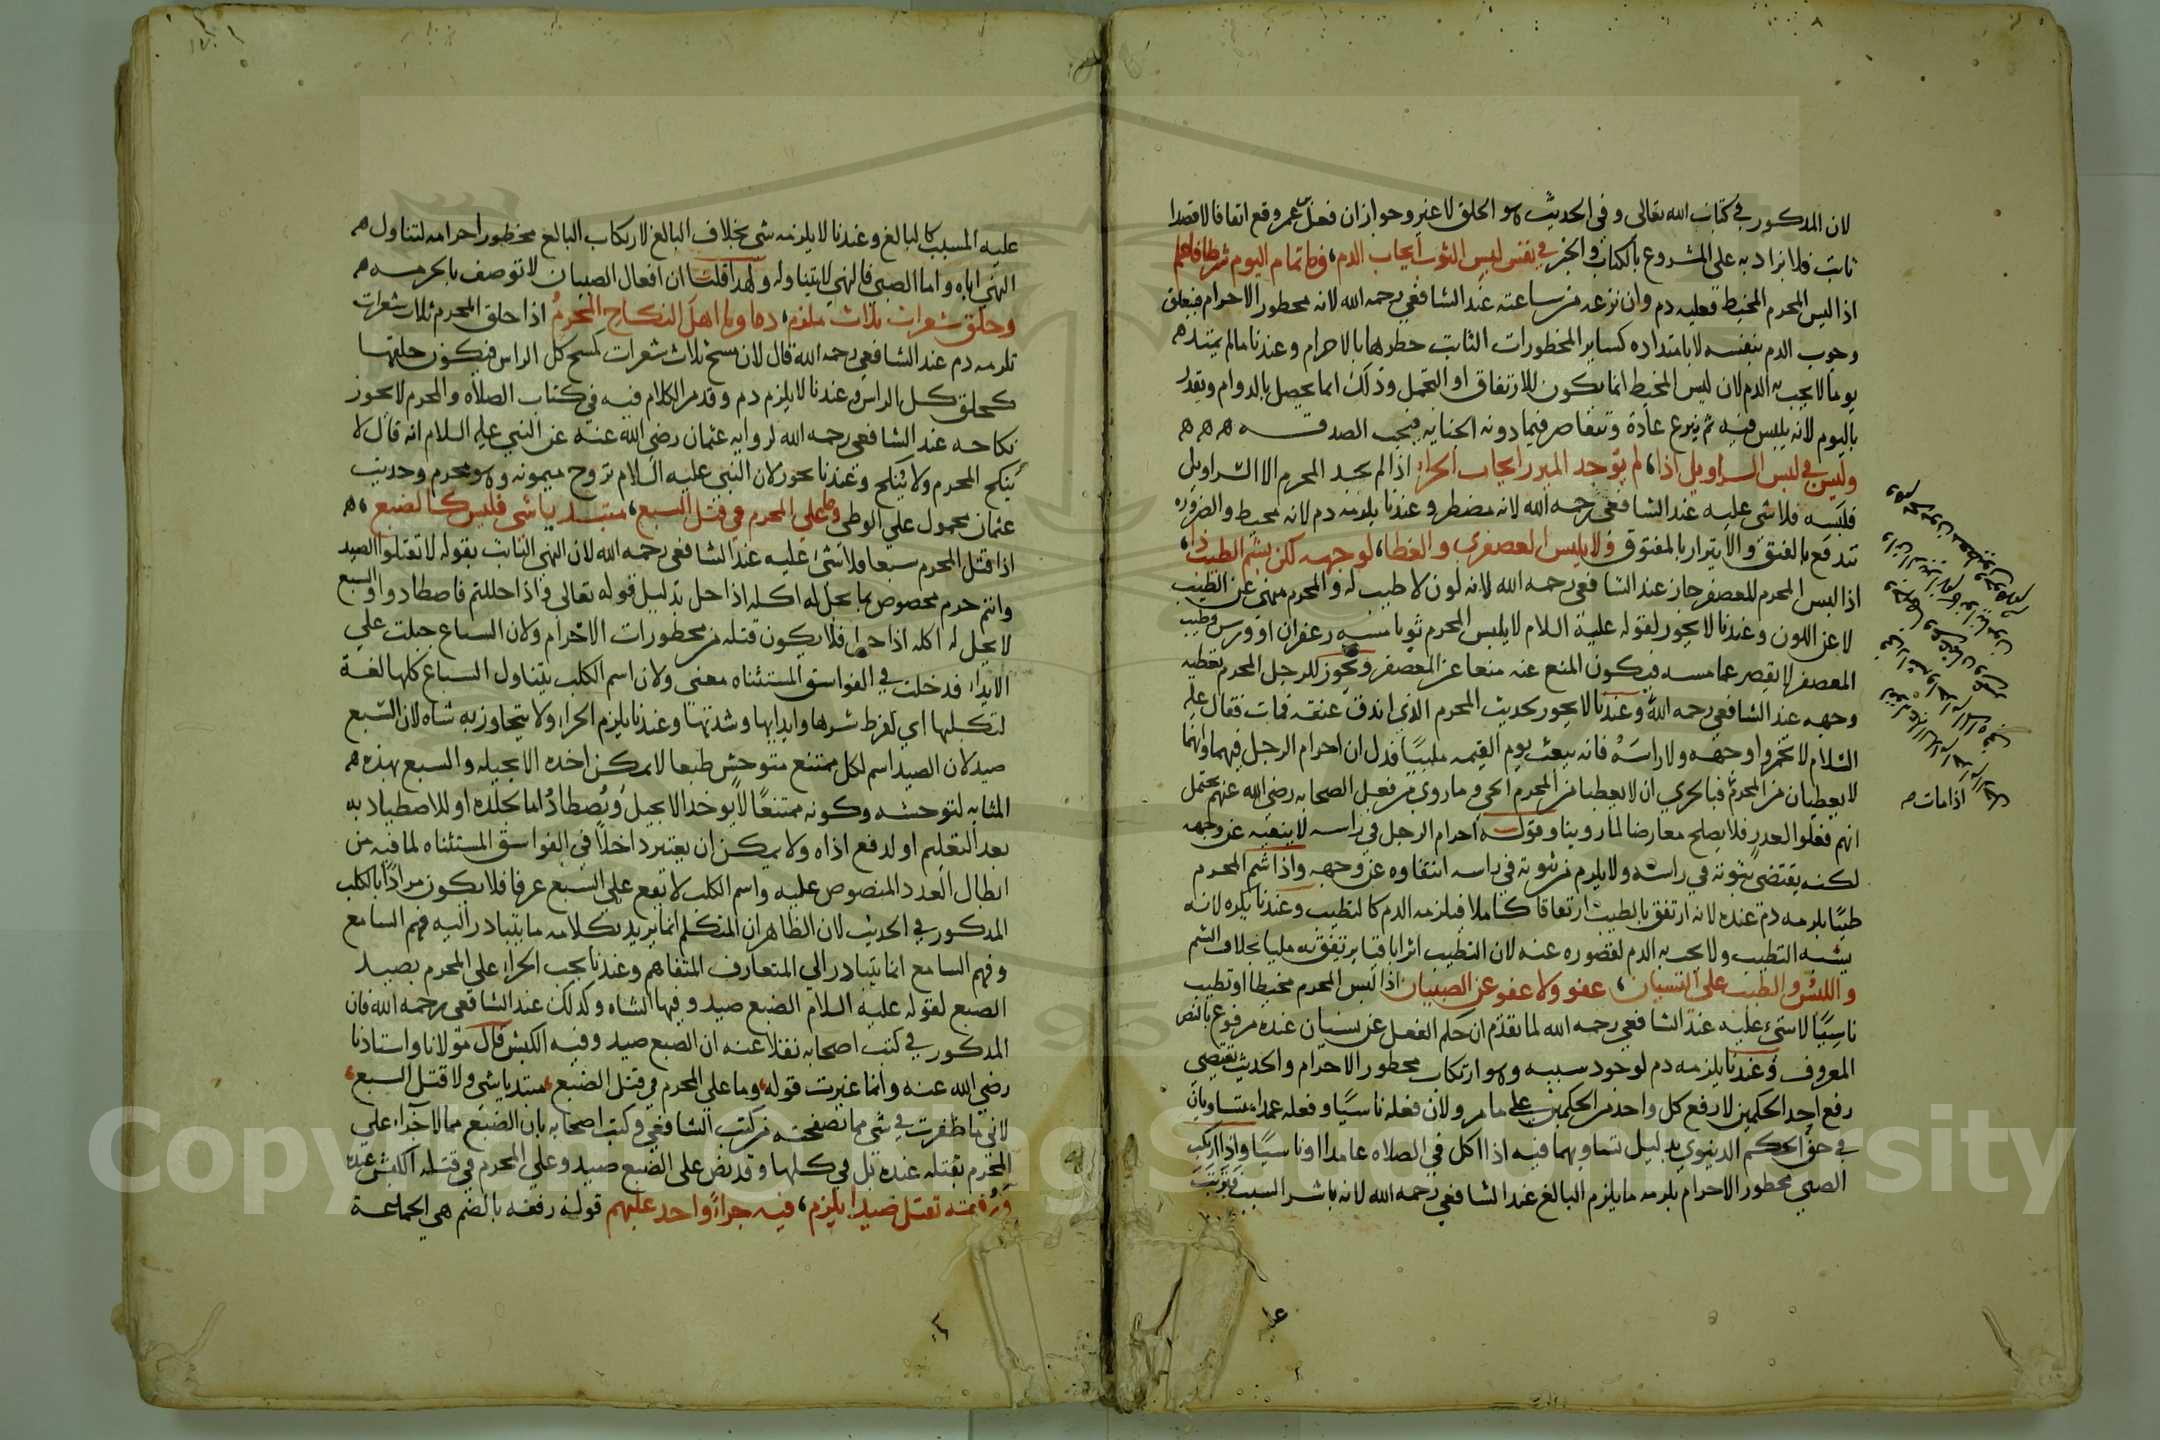 لان المذكور في كتاب الله تعالى وفي الحديث هو الحلق لا غير وجواز ان فعل عمر وقع اتفاقا لا قصدا
ثابت فلا يزاد به على المشروع بالكتاب والخبر في نفس لبس الثوب ايجاب الدم وما تمام اليوم شرطا فاعلم
اذا لبس المحرم المخيط فعليه دم وان نزعه من ساعته عند الشافعي رحمه الله لانه محظور الاحرام فيتعلق
وجوب الدم بنفسه لا بامتداده كساير المحظورات الثابت حظرها بالاحرام وعندنا مالم يمتد ه
يوما لا يجب به الدم لان لبس المخيط انما يكون للارتفاق او التجمل وذلك انما يحصل بالدوام ويقدر
باليوم لانه يلبس فيه ثم ينزع عادة وتتقاصر فيما دونه الجناية فيجب الصدقه ه ه ه
وليس في لبس السراويل اذا لم توجد الميزر ايجاب الجزا اذا لم يجد المحرم الا السراويل
فلبسه فلا شي عليه عند الشافعي رحمه الله لانه مضطر وعندنا يلزمه دم لانه مخيط والضروره
تندفع بالفتق والايتزار بالمفتوق ولا بلبس العصفري والغطا لوجهه لكن بشم الطيب ذا
اذا لبس المحرم المعصفر جاز عند الشافعي رحمه الله لانه لون لا طيب له والمحرم منهي عن الطيب
لا عن اللون وعندنا لا يجوز لقوله عليه السلام لا يلبس المحرم ثوبا مسه زعفران او ورس وطيب
المعصفر لا يقصر عما مسه فيكون المنع عنه منعا عن المعصفر ويجوز للرجل المحرم تغطيه
وجهه عند الشافعي رحمه الله وعندنا لا يجوز بحديث المحرم الذي اندق عنقه فمات فقال عليه
السلام لا تخمروا وجهه ولا راسه فانه يبعث يوم القيمه ملبيا فدل ان احرام الرجل فيهما وانما
لا يغطيان من المحرم فبالحري ان لا يغطيا من المحرم الحي وما روي من فعل الصحابه رضي الله عنهم يحتمل
انهم فعلوا لعذر فلا يصلح معارضا لما روينا وقوله احرام الرجل في راسه لا ينفيه عن وجهه
لكنه يقتضي ثبوته في راسه ولا يلزم من ثبوته في راسه انتفاوه عن وجهه واذا شم المحرم
طيبا يلزمه دم عنده لانه ارتفق بالطيب ارتفاقا كاملا فيلزمه الدم كالتطيب وعندنا يكره لانه
يشبه التطيب ولا يجب به الدم لقصوره عنه لان التطيب اثرا باقيا يرتفق به مليا بخلاف الشم
واللبس والطيب على النسيان عفو ولا عفو عن الصبيان اذا لبس المحرم مخيطا او تطيب
ناسيا لا شيء عليه عند الشافعي رحمه الله لما تقدم ان حكم الفعل عن نسيان عنده مرفوع بالنص
المعروف وعندنا يلزمه دم لوجود سببه وهو ارتكاب محظور الاحرام والحديث يقتضي
رفع احد الحكمين لا رفع كل واحد من الحكمين على ما مر ولان فعله ناسيا وفعله عمدا متساويان
في حق الحكم الدنيوي بدليل تساويهما فيه اذا اكل في الصلاه عامدا او ناسيا واذا ارتكب
الصبي محظور الاحرام يلزمه ما يلزم البالغ عند الشافعي رحمه الله لانه باشر السبب فيترتب
اذا مات ه
عليه المسبب كالبالغ وعندنا لا يلزمه شي بخلاف البالغ لارتكاب البالغ محظور احرامه لتناول ه
النهي اياه واما الصبي فالنهي لا يتناوله ولهذا قلنا ان افعال الصبيان لا توصف بالحرمه ه
وحلق شعرات ثلاث ملزم دما وما اهل النكاح المحرم اذا حلق المحرم ثلاث شعرات
تلزمه دم عند الشافعي رحمه الله قال لان مسح ثلاث شعرات كمسح كل الراس فيكون حلقها
كحلق كل الراس وعندنا لا يلزم دم وقد مر الكلام فيه في كتاب الصلاه والمحرم لا يجوز
نكاحه عند الشافعي رحمه الله لروايه عثمان رضي الله عنه عن النبي عليه السلام انه قال لا
ينكح المحرم ولا ينكح وعندنا يجوز لان النبي عليه السلام تزوج ميمونه وهو محرم وحديث
عثمان محمول على الوطي وما على المحرم في قتل السبع مبتديا شي فليس كالضبع ه
اذا قتل المحرم سبعا ولا شي عليه عند الشافعي رحمه الله لان النهي الثابت بقوله لا تقتلوا الصيد
وانتم حرم مخصوص بما يحل له اكله اذا حل بدليل قوله تعالى واذا حللتم فاصطادوا والسبع
لا يحل له اكله اذا حل فلا يكون قتله من محظورات الاحرام ولان السباع جبلت على
الايذاء فدخلت في الفواسق المستثناه معنى ولان اسم الكلب يتناول السباع كلها لغة
لتكلبها اي لفرط شرها وايذايها وشدتها وعندنا يلزم الجزاء ولا يتجاوز به شاه لان السبع
صيد لان الصيد اسم لكل ممتنع متوحش طبعا لا يمكن اخذه الا بحيله والسبع بهذه ه
المثابه لتوحشه وكونه ممتنعا لا يوخذ الا بحيل ويصطاد اما لجلده او للاصطياد به
بعد التعليم او لدفع اذاه ولا يمكن ان يعتبر داخلا في الفواسق المستثناه لما فيه من
ابطال العدد المنصوص عليه واسم الكلب لا تقع على السبع عرفا فلا يكون مرادا بالكلب
المذكور في الحديث لان الظاهر ان المتكلم انما يريد بكلامه ما يتبادر اليه فهم السامع
وفهم السامع انما يتبادر الى المتعارف المتفاهم وعندنا يجب الجزاء على المحرم بصيد
الضبع لقوله عليه السلام الضبع صيد وفيها الشاه وكذلك عند الشافعي رحمه الله فان
المذكور في كتب اصحابه نقلا عنه ان الضبع صيد وفيه الكبش قال مولانا واستاذنا
رضي الله عنه وانما غيرت قوله وما على المحرم في قتل الضبع مبتديا شي ولا قتل السبع
لاني ما ظفرت في شي مما تصفحته من كتب الشافعي وكتب اصحابه بان الضبع مما لا جزاء على
المحرم بقتله عنده بل في كلها وقد نص على الضبع صيد وعلى المحرم في قتله الكبش عنده
ورفقته تقتل صيدا يلزم فيه جزاء واحد عليهم قوله رفقه بالضم هي الجماعة